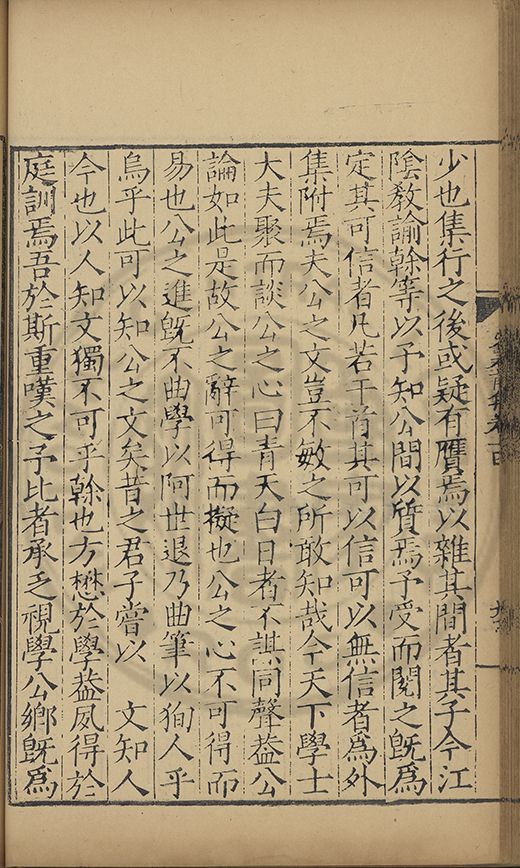 少也集行之後或疑有贋焉以雜其間者其子今江
陰敎諭榦等以予知公間以質焉予受而閱之旣爲
定其可信者凡若干首其可以信可以無信者爲外
集附焉夫公之文豈不敏之所敢知哉今天下學士
大夫聚而談公之心曰青天白日者不謀同聲葢公
論如此是故公之辭可得而擬也公之心不可得而
易也公之進旣不曲學以阿世退乃曲筆以狥人乎
烏乎此可以知公之文矣昔之君子嘗以 文知人
今也以人知文獨不可乎榦也方懋於學葢夙得於
庭訓焉吾於斯重嘆之予比者承乏視學公鄉旣爲